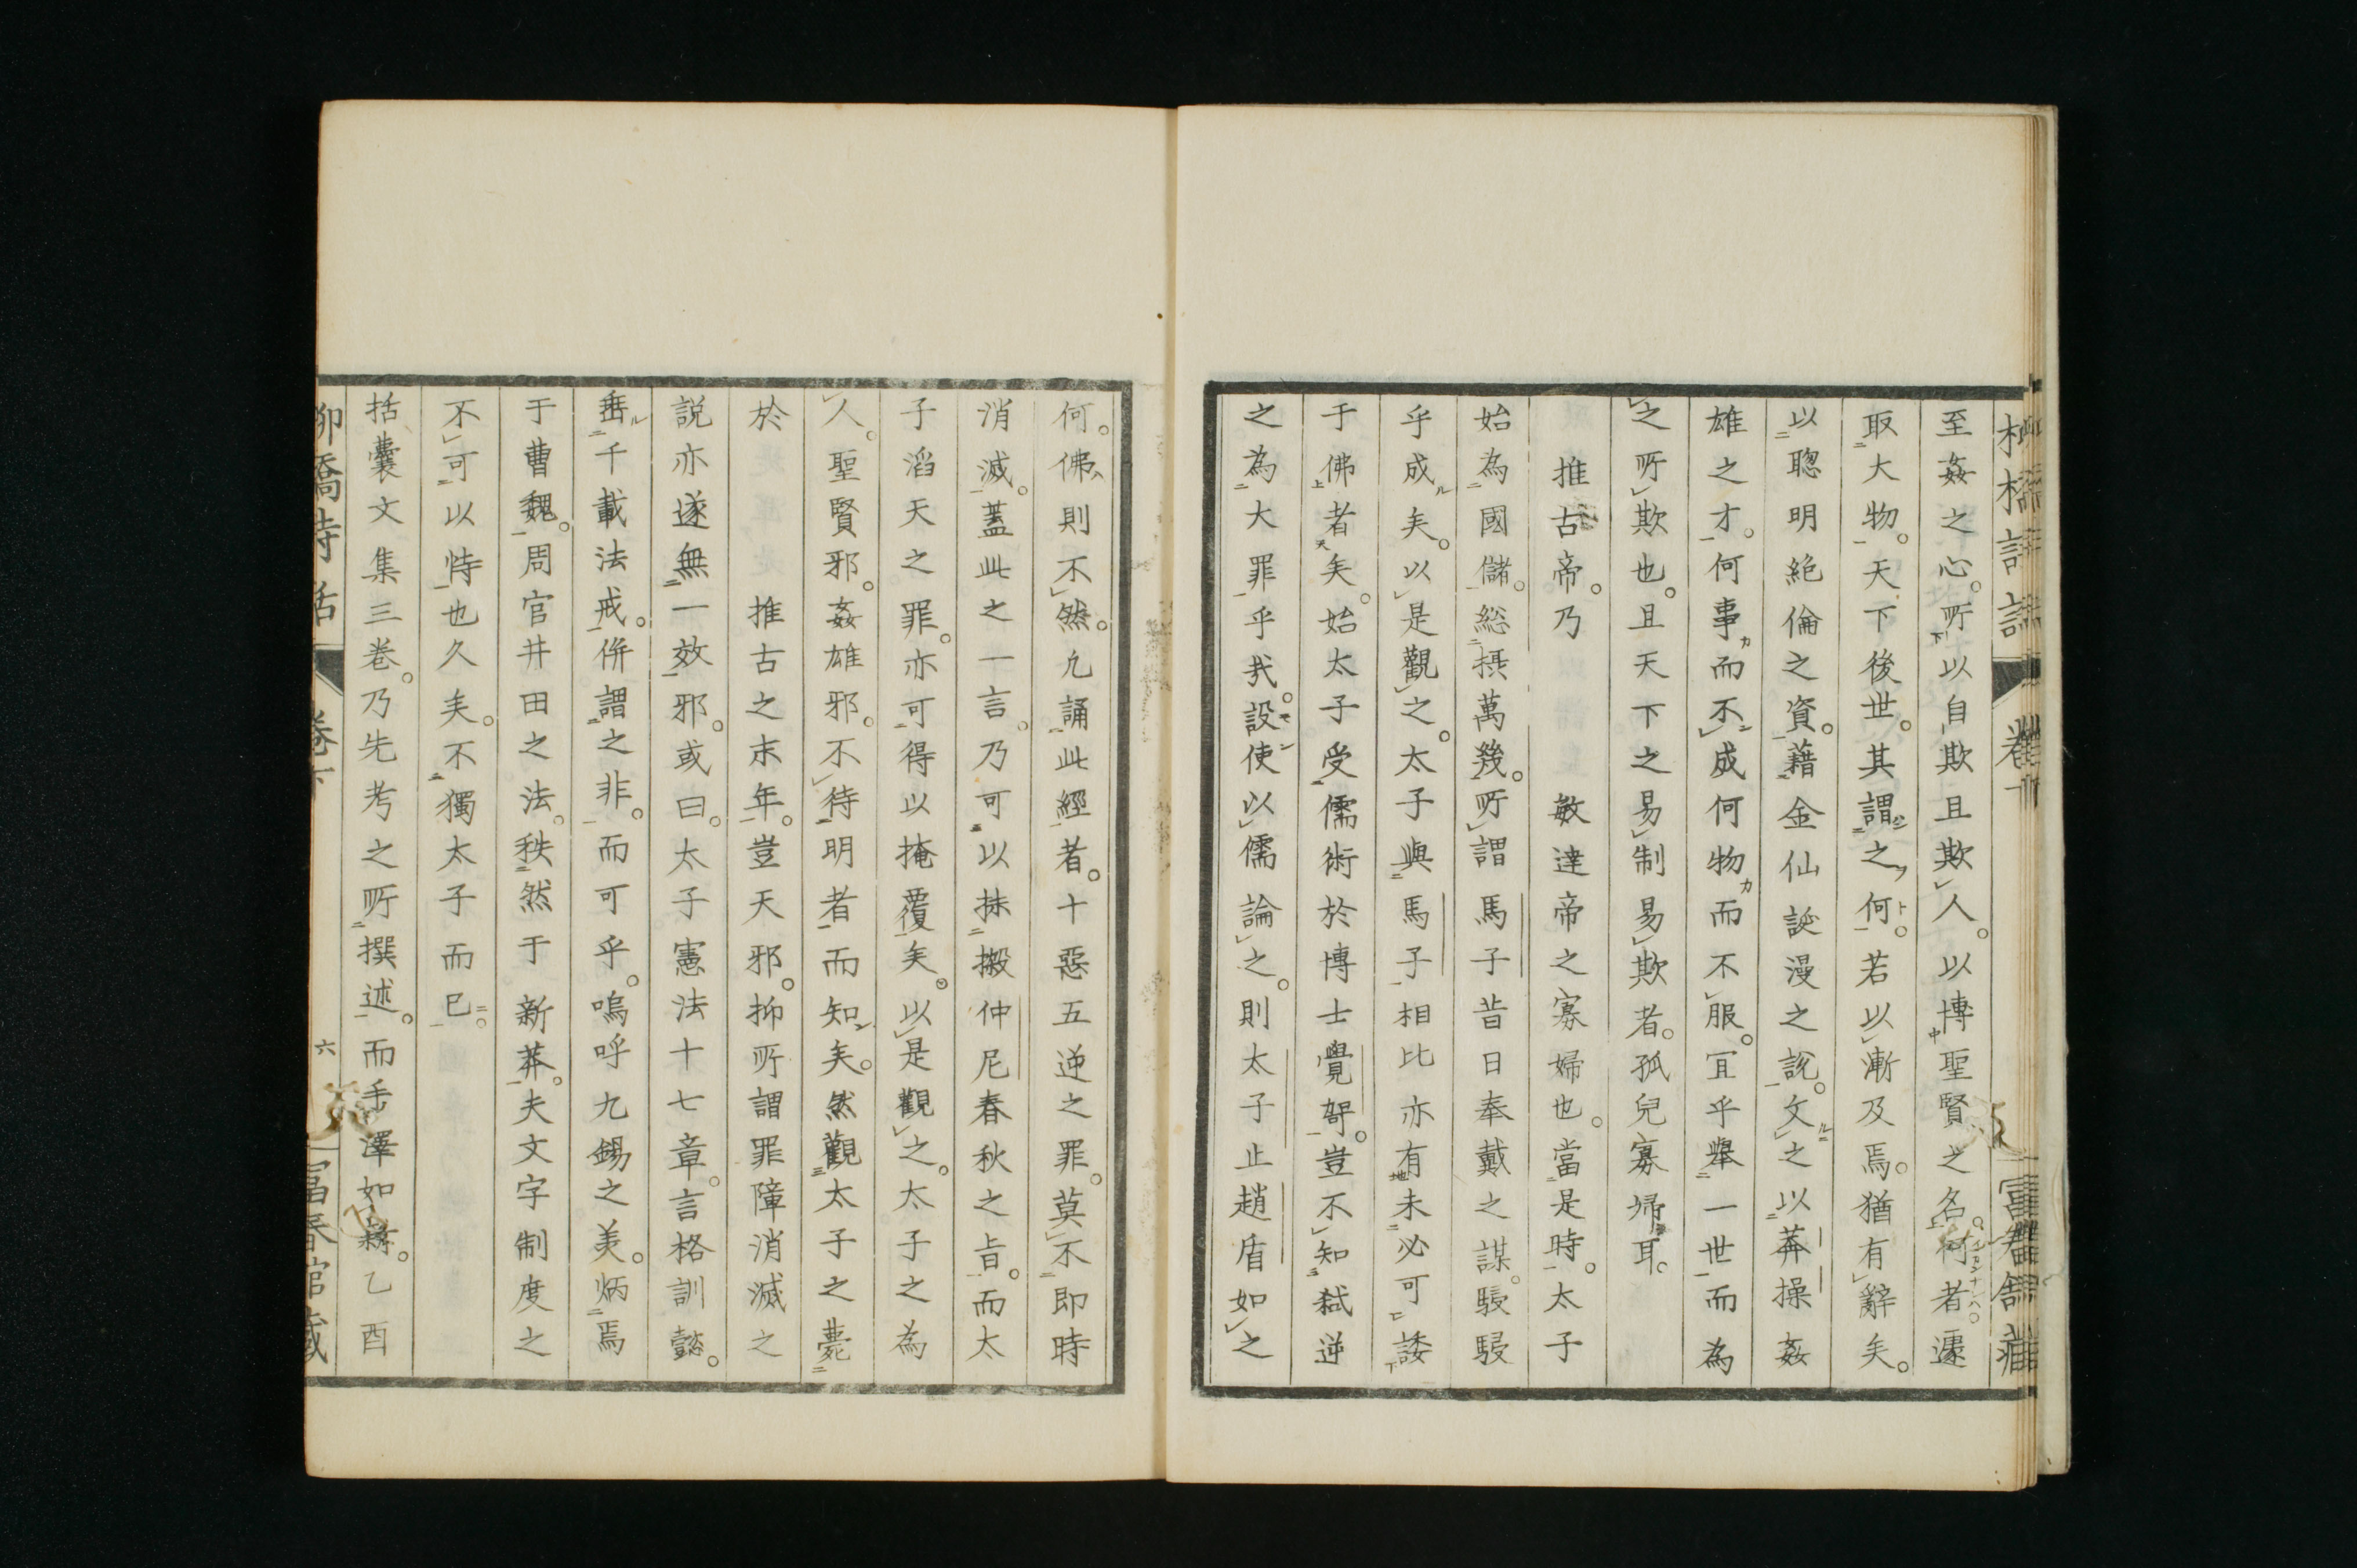 至姦之心。所以自欺且欺人。以博聖賢之名。何者。遽
取大物。天下後世。其謂之何。若以漸及焉。猶有辭矣。
以聰明絕倫之資。藉金仙誕漫之說。文之以莽操姦
雄之才。何事而不成。何物而不服。冝乎舉一世而為
之所欺也。且天下之易制易欺者。孤兒寡婦耳。
推古帝。乃敏達帝之寡婦也。當是時。太子
始為國儲。総摂萬幾。所謂馬子昔日奉戴之謀。駸駸
乎成矣。以是觀之。太子與馬子相比亦有未必可諉
于佛者矣。始太子受儒術於博士覺哿。豈不知弒逆
之為大罪乎哉。設使以儒論之。則太子止趙盾如之
何。佛則不然。凢誦此經者。十惡五逆之罪。莫不即時
消滅。蓋此之一言。乃可以抹搬仲尼春秋之旨。而太
子滔天之罪。亦可得以掩覆矣。以是觀之。太子之為
人。聖賢邪。姦雄邪。不待明者而知矣。然觀太子之薨
於推古之末年。豈天邪。抑所謂罪障消滅之
説亦遂無一效邪。或曰。太子憲法十七章。言格訓懿。
垂千載法戒。併謂之非。而可乎。嗚呼九錫之美。炳焉
于曹魏。周官井田之法。秩然于新莽。夫文字制度之
不可以恃也久矣。不獨太子而已。
括囊文集三卷。乃先考之所撰述。而手澤如新。乙酉
柳橋詩話
卷下
六
富春館藏